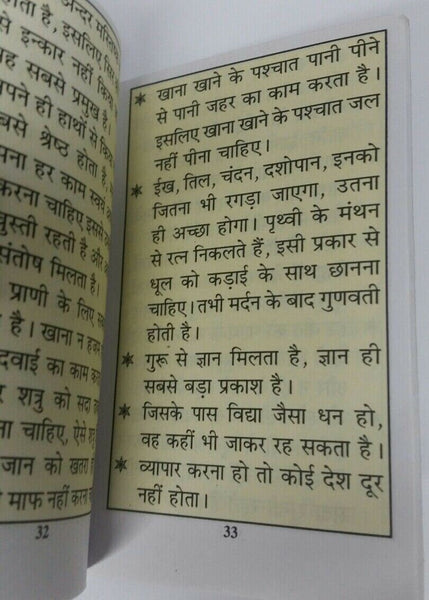 अन्दर
है, इसलिए
से इन्कार नहीं किया
सबसे प्रमुख है।
ही हाथों से
श्रेष्ठ होता है,
हर काम स्वयं
करना चाहिए इससे
रहती है और
संतोष मिलता है।
प्राणी के लिए
है। खाना न
का काम
शत्रु को सदा
चाहिए, ऐसे
जान को खतरा
माफ नहीं करना
32
* खाना खाने के पश्चात पानी पीने
से पानी जहर का काम करता है।
इसलिए खाना खाने के पश्चात जल
नहीं पीना चाहिए।
* ईख, तिल, चंदन, दशोपान, इनको
जितना भी रगड़ा जाएगा, उतना
ही अच्छा होगा। पृथ्वी के मंथन
से रत्न निकलते हैं, इसी प्रकार से
धूल को कड़ाई के साथ छानना
चाहिए। तभी मर्दन के बाद गुणवती
होती है।
* गुरू से ज्ञान मिलता है, ज्ञान ही
सबसे बड़ा प्रकाश है।
* जिसके पास विद्या जैसा धन हो,
वह कहीं भी जाकर रह सकता है।
* व्यापार करना हो तो कोई देश दूर
नहीं होता।
33